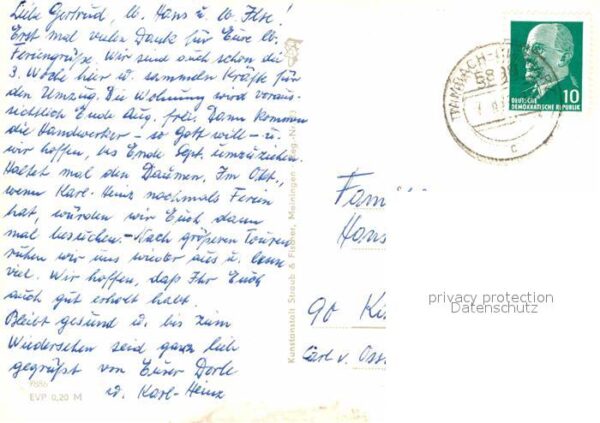 Liebe Gertrud, lb. Hans u. lb. Ilse!
Erst mal vielen Dank für Eure lb.
Feriengrüße. Wir sind auch schon die
3. Woche hier u. sammeln Kräfte für
den Umzug. Die Wohnung wird voraus-
sichtlich Ende Aug. frei. Dann kommen
die Handwerker – so Gott will – u.
wir hoffen, bis Ende Sept. umzuziehen.
Haltet mal den Daumen. Im Okt.,
wenn Karl-Heinz nochmals Ferien
hat, würden wir Euch dann
mal besuchen. – Nach größeren Touren
ruhen wir uns wieder aus u. lesen
viel. Wir hoffen, daß Ihr Euch
auch gut erholt habt.
Bleibt gesund u. bis zum
Wiedersehen seid ganz lieb
gegrüßt von Eurer Dorle
u. Karl-Heinz
EVP 0,20 M
Kunstanstalt Straub & Fischer, Meiningen
TAMBACH-
10
DEUTSCHE
DEMOKRATISCHE REPUBLIK
c
Fam
Hans
90 K
Carl v. Oss
privacy protection
Datenschutz